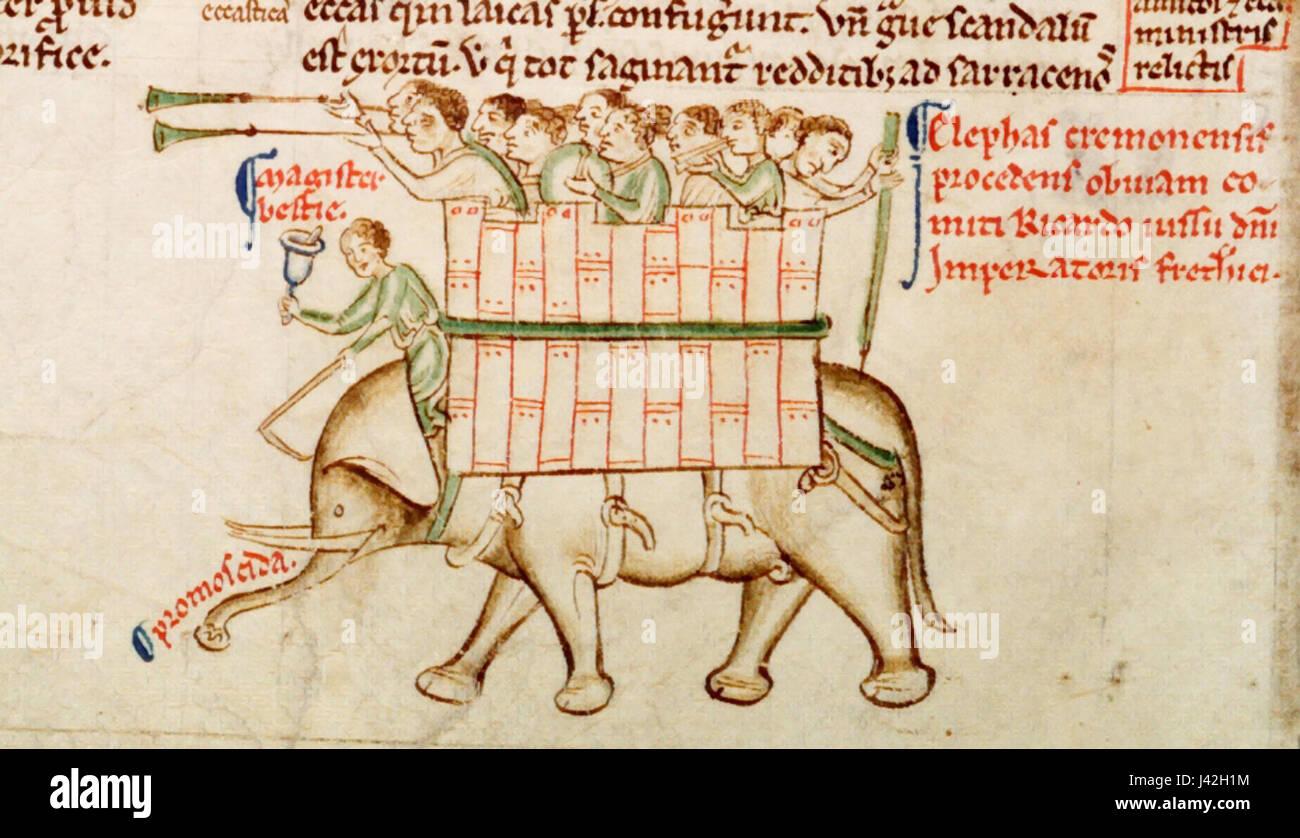 orifice.
eccastica
eccas qin laicas pl. confugiunt. Vn gue scandalu
est exortu. v qi tot saginant redditib3 ad sarraceno
ministris
relictis
Elephas cremonensis
procedens obuiam co-
miti Ricardo iussu dni
Imperatoris fretherici.
Magister
bestie.
promoscida.
alamy stock photo
alamy
Image ID: J42H1M
www.alamy.com